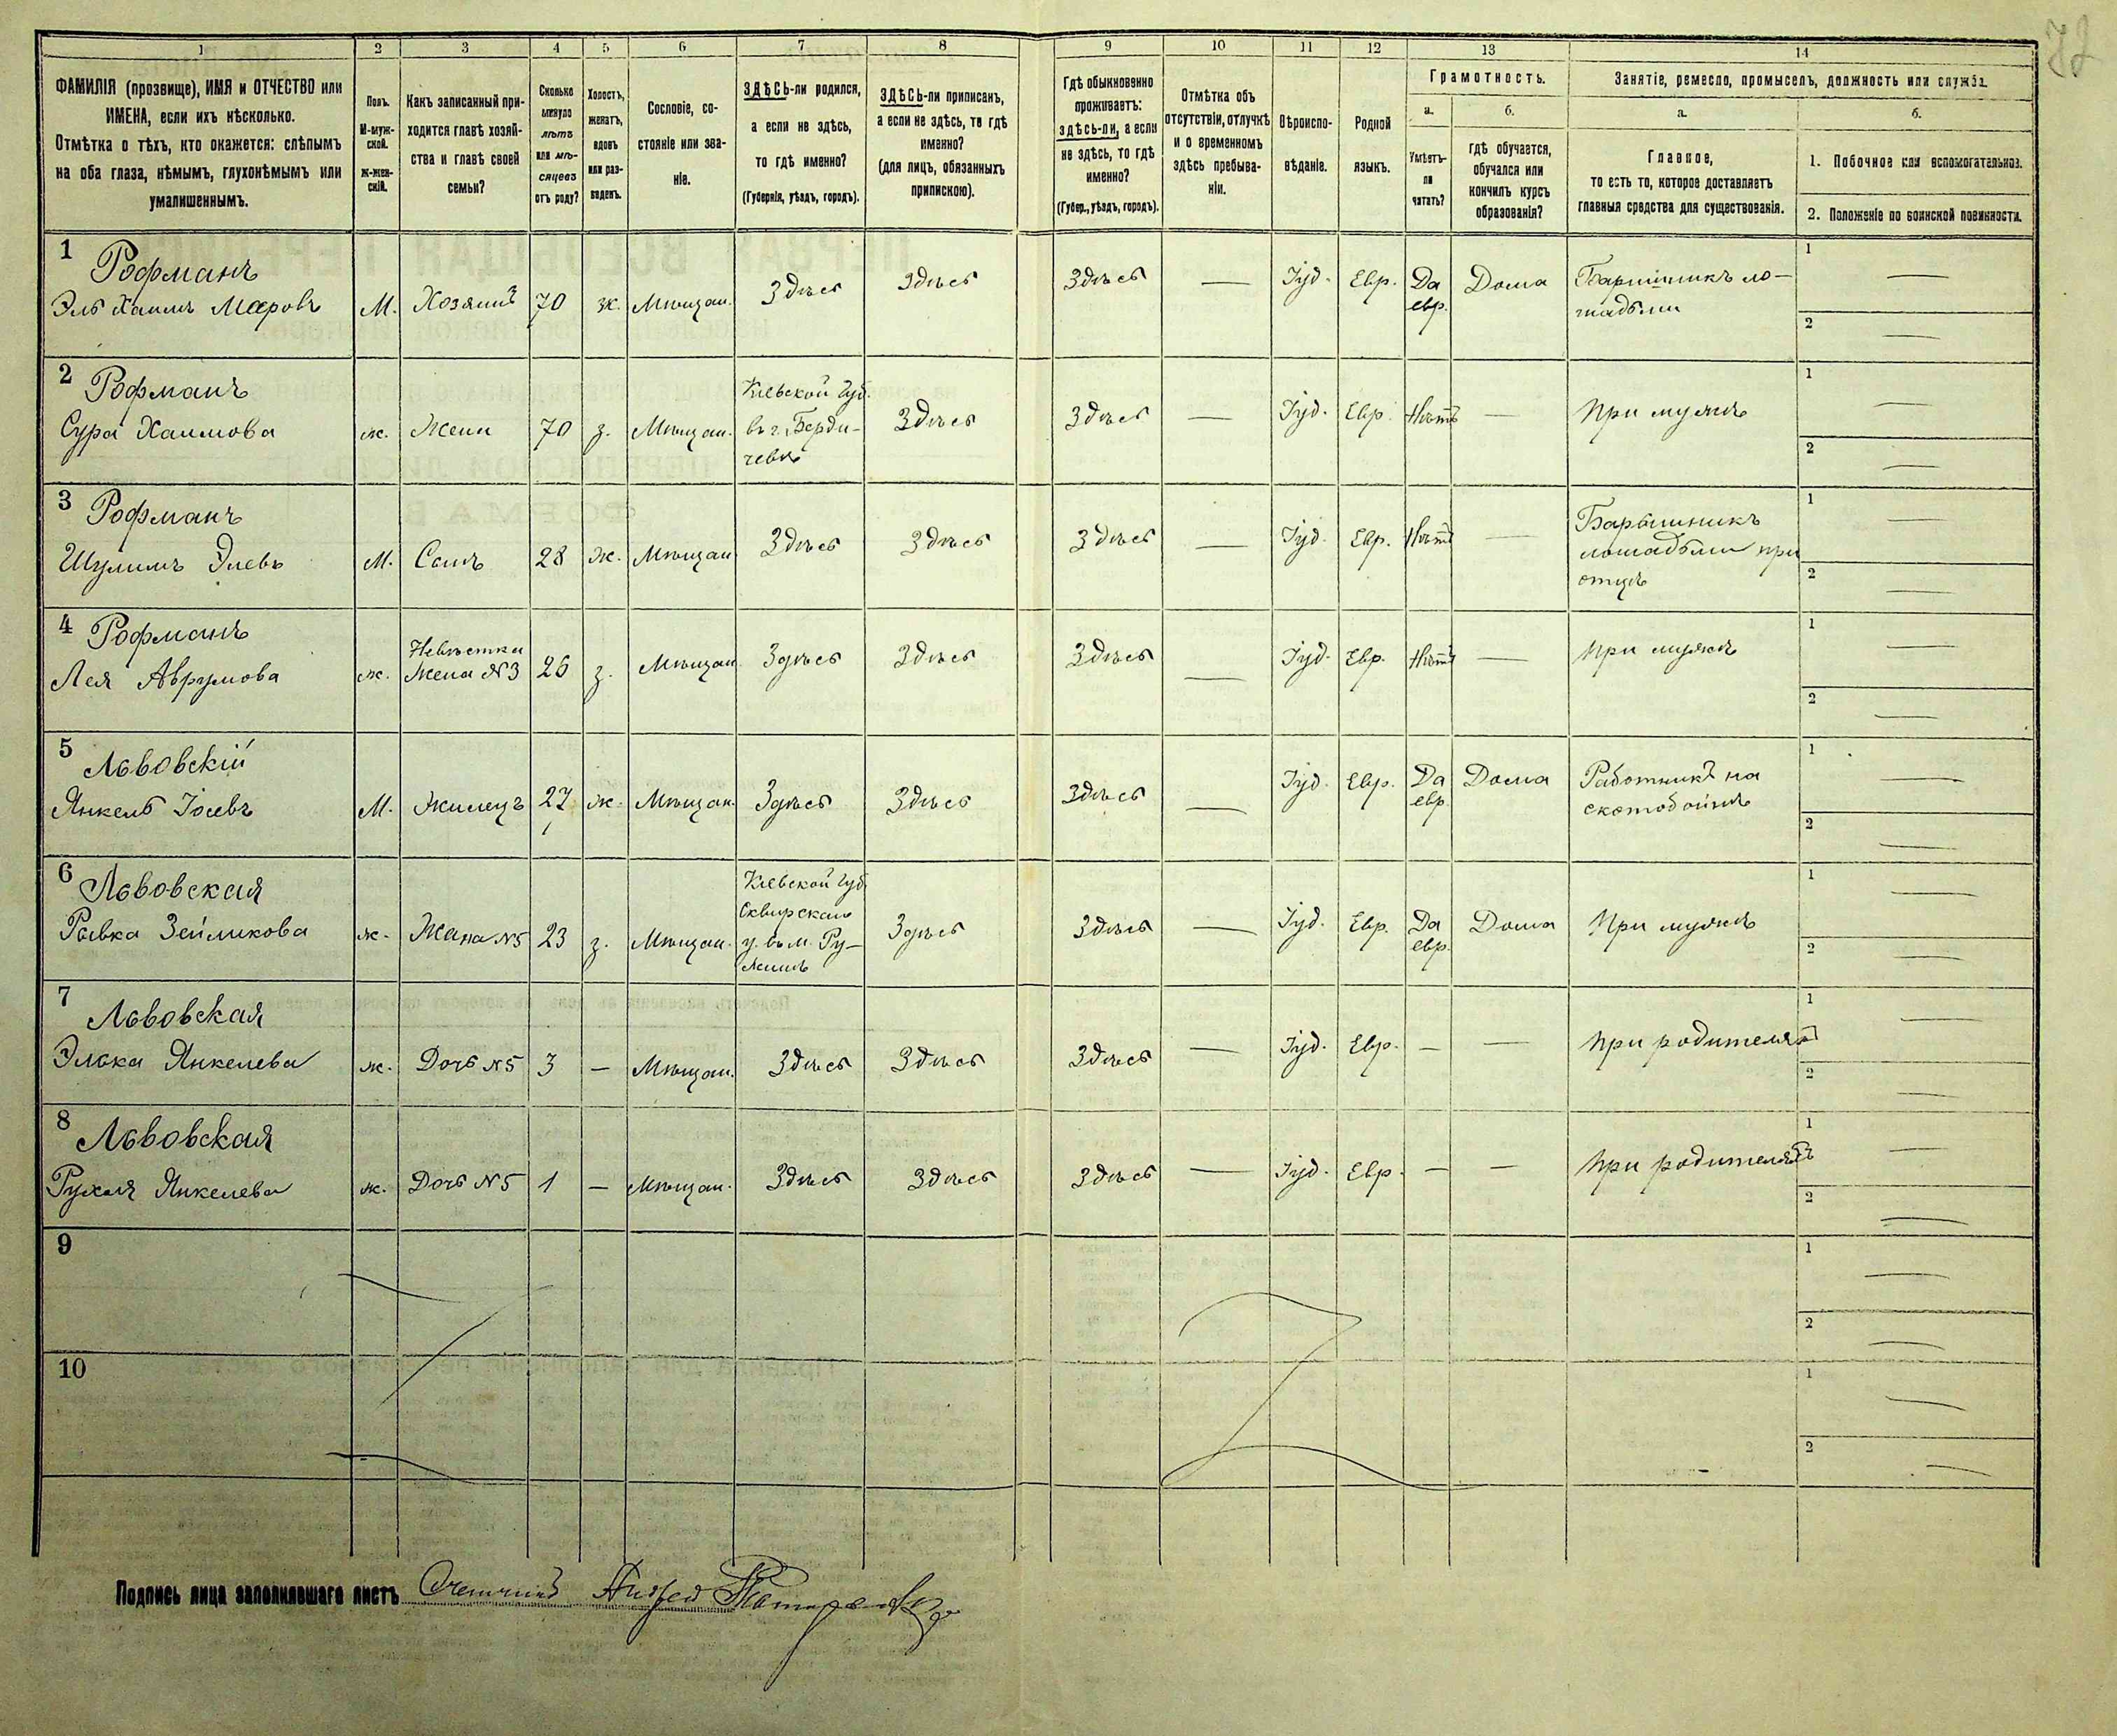 1 2 3 4 5 6 7 8 9 10 11 12 13 14
ФАМИЛІЯ (прозвище), ИМЯ и ОТЧЕСТВО или
ИМЕНА, если ихъ нѣсколько.
Отмѣтка о тѣхъ, кто окажется: слѣпымъ
на оба глаза, нѣмымъ, глухонѣмымъ или
умалишеннымъ.
Полъ.
М-муж-
ской.
Ж-жен-
скій.
Какъ записанный при-
ходится главѣ хозяй-
ства и главѣ своей
семьи?
Сколько
минуло
лѣтъ
или мѣ-
сяцевъ
отъ роду?
Холостъ,
женатъ,
вдовъ
или раз-
веденъ.
Сословіе, со-
стояніе или зва-
ніе.
ЗДѢСЬ-ли родился,
а если не здѣсь,
то гдѣ именно?
(Губернія, уѣздъ, городъ).
ЗДѢСЬ-ли приписанъ,
а если не здѣсь, то гдѣ
именно?
(для лицъ, обязанныхъ
припискою).
Гдѣ обыкновенно
проживаетъ:
здѣсь-ли, а если
не здѣсь, то гдѣ
именно?
(Губер., уѣздъ, городъ).
Отмѣтка объ
отсутствіи, отлучкѣ
и о временномъ
здѣсь пребыва-
ніи.
Вѣроиспо-
вѣданіе.
Родной
языкъ.
Грамотность.
а.
Умѣетъ-
ли
читать?
б.
гдѣ обучается,
обучался или
кончилъ курсъ
образованія?
Занятіе, ремесло, промыселъ, должность или служба.
а.
Главное,
то есть то, которое доставляетъ
главныя средства для существованія.
б.
1. Побочное или вспомогательное.
2. Положеніе по воинской повинности.
1 Рофманъ
Эль Хаимъ Мееровъ М. Хозяинъ 70 ж. Мѣщан. Здѣсь Здѣсь Здѣсь — Іуд. Евр. Да евр. Дома Барышникъ ло-
шадьми
1 —
2 —
2 Рофманъ
Сура Хаимова ж. Жена 70 з. Мѣщан. Кіевской Губ.
въ г. Берди-
чевѣ
Здѣсь Здѣсь — Іуд. Евр. Нѣтъ — При мужѣ
1 —
2 —
3 Рофманъ
Шулимъ Элевъ М. Сынъ 28 ж. Мѣщан Здѣсь Здѣсь Здѣсь — Іуд. Евр. Нѣтъ — Барышникъ
лошадьми при
отцѣ
1 —
2 —
4 Рофманъ
Лея Аврумова ж. Невѣстка
Жена №3 26 з. Мѣщан Здѣсь Здѣсь Здѣсь — Іуд. Евр. Нѣтъ — При мужѣ
1 —
2 —
5 Львовскій
Янкель Іосевъ М. Жилецъ 27 ж. Мѣщан. Здѣсь Здѣсь Здѣсь — Іуд. Евр. Да евр. Дома Работникъ на
скотобойнѣ
1 —
2 —
6 Львовская
Рывка Зейликова ж. Жена №5 23 з. Мѣщан. Кіевской Губ.
Сквирскаго
у. въ м. Ру-
жинѣ
Здѣсь Здѣсь — Іуд. Евр. Да евр. Дома При мужѣ
1 —
2 —
7 Львовская
Элька Янкелева ж. Дочь №5 3 — Мѣщан. Здѣсь Здѣсь Здѣсь — Іуд. Евр. — — При родителяхъ
1 —
2 —
8 Львовская
Рухля Янкелева ж. Дочь №5 1 — Мѣщан. Здѣсь Здѣсь Здѣсь — Іуд. Евр. — — При родителяхъ
1 —
2 —
9
1 —
2 —
10
1 —
2 —
Подпись лица заполнявшаго листъ Счетчикъ Андрей